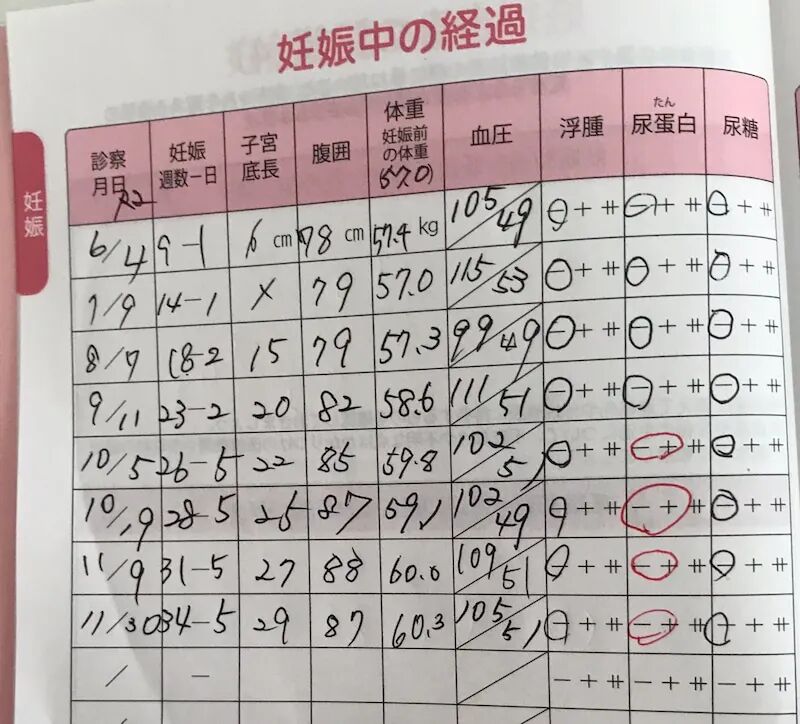 妊娠中の経過
妊娠
診察月日 妊娠週数ー日 子宮底長 腹囲 体重 妊娠前の体重 (57.0) 血圧 浮腫 尿蛋白 たん 尿糖
R2
6/4 9-1 cm 78 cm 57.4 kg 105/49 - + ⧺ - + ⧺ - + ⧺
7/9 14-1 × 79 57.0 115/53 - + ⧺ - + ⧺ - + ⧺
8/7 18-2 15 79 57.3 99/49 - + ⧺ - + ⧺ - + ⧺
9/11 23-2 20 82 58.6 111/51 - + ⧺ - + ⧺ - + ⧺
10/5 26-5 22 85 59.8 102/51 - + ⧺ - + ⧺ - + ⧺
10/19 28-5 25 87 59.1 102/49 - + ⧺ - + ⧺ - + ⧺
11/9 31-5 27 88 60.0 109/51 - + ⧺ - + ⧺ - + ⧺
11/30 34-5 29 87 60.3 105/51 - + ⧺ - + ⧺ - + ⧺
/ - / - + ⧺ - + ⧺ - + ⧺